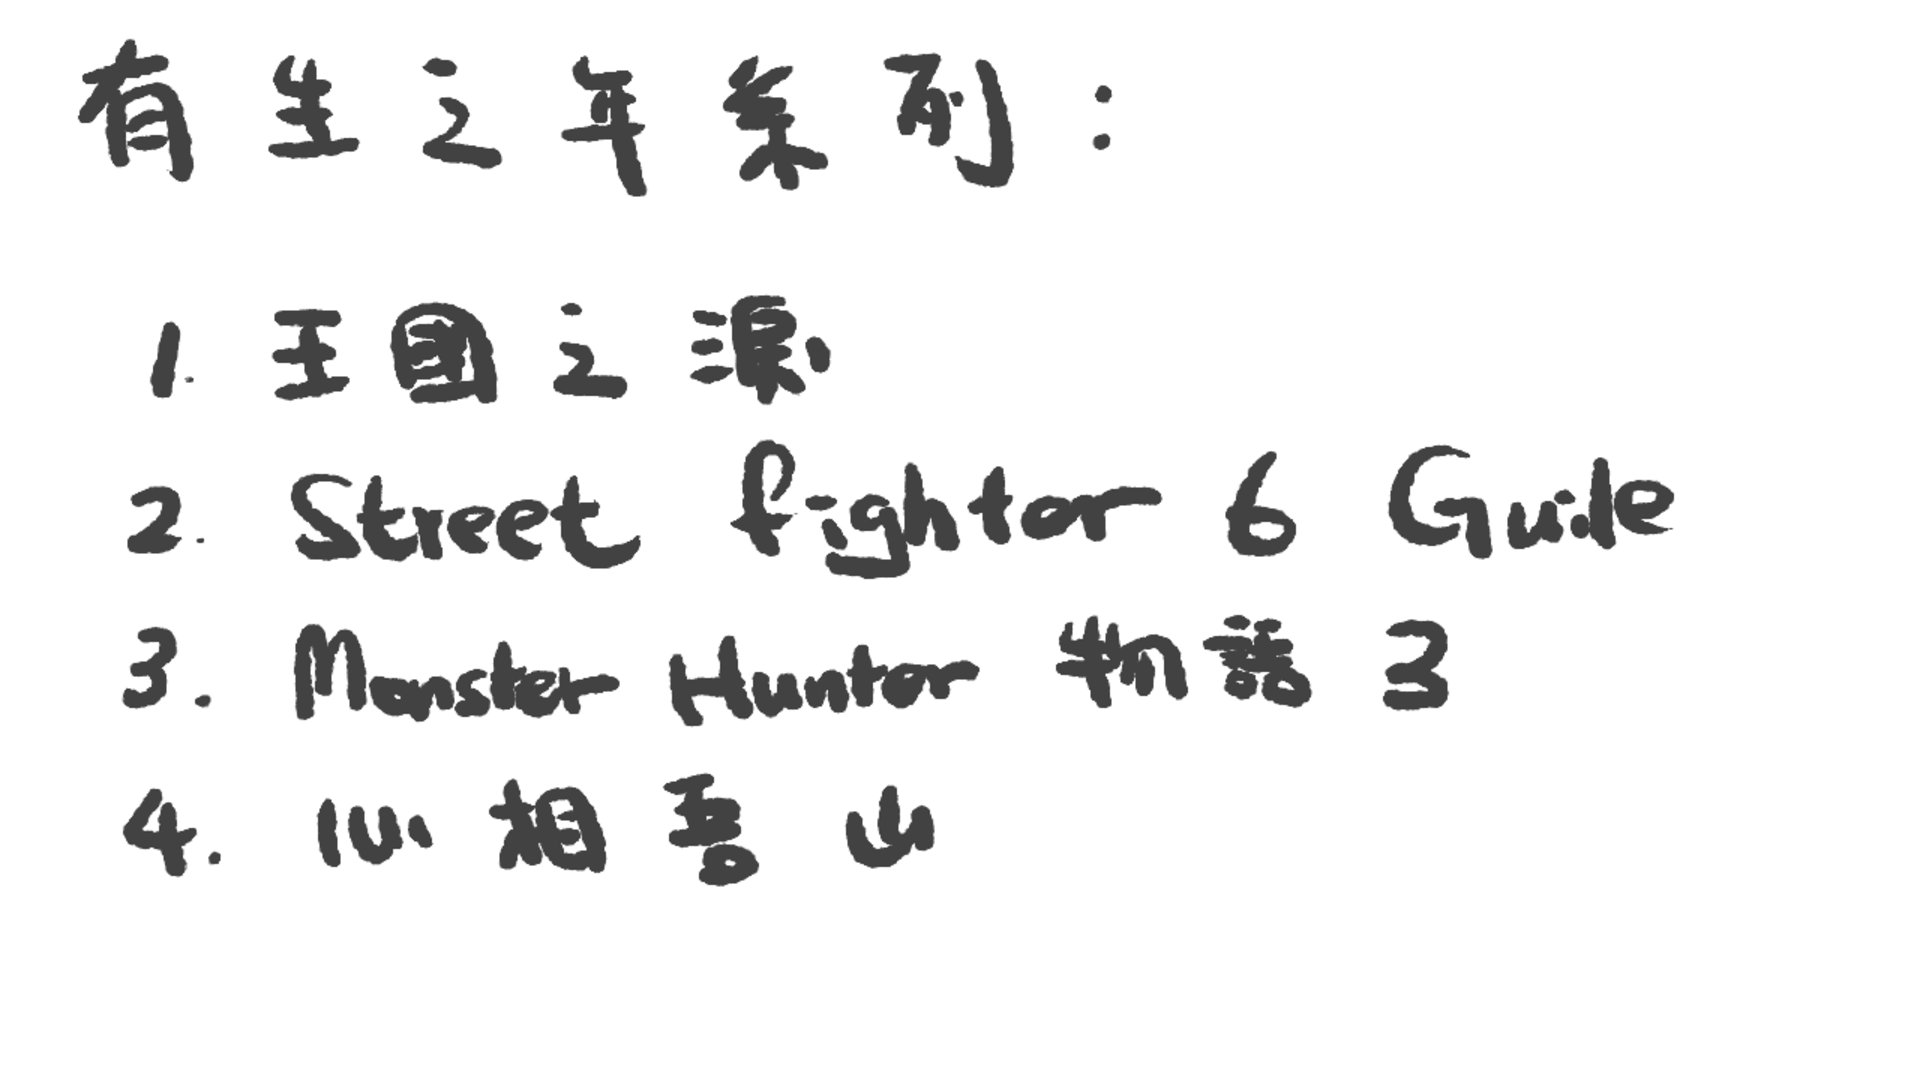 有生之年系列：
1. 王國之淚
2. Street fighter 6 Guile
3. Monster Hunter 物語 3
4. 心相吾山